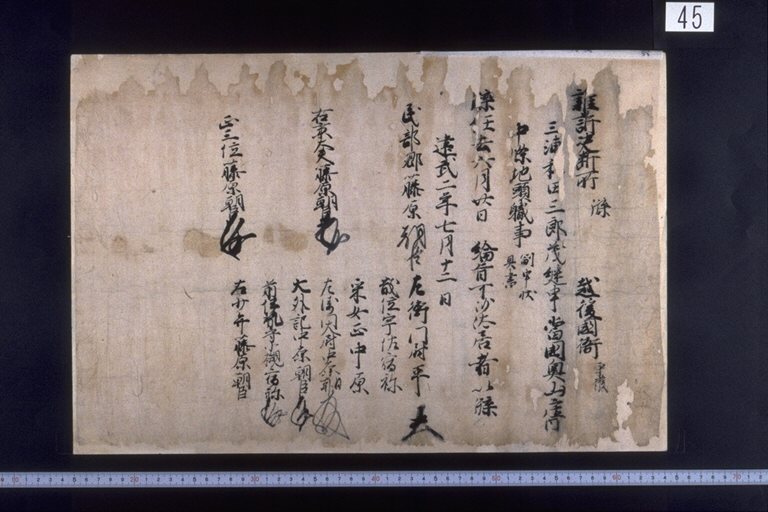 45
雜訴決断所 牒 越後國衙 守護
三浦和田三郎茂継申當國奥山庄内
中條地頭職事 副申状具書
牒任去六月廿日 綸旨可沙汰居者以牒
建武二年七月十二日
民部卿藤原朝臣 左衛門府平
散位宇佐宿祢
采女正中原
右京大夫藤原朝臣 左衛門大尉中原朝臣
大外記中原朝臣
前伯耆守小槻宿祢
正三位藤原朝臣 右少弁藤原朝臣